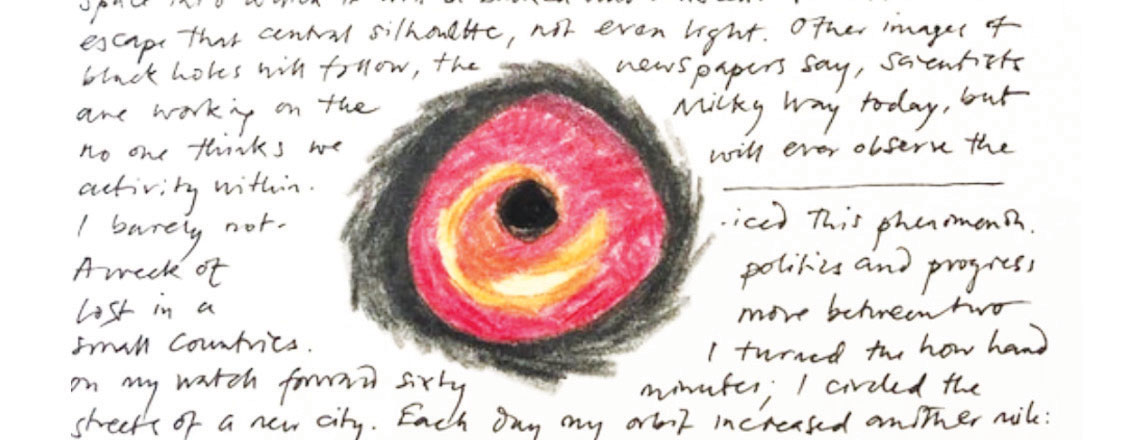 space into which it
escape that central silhouette, not even light. Other images of
black holes will follow, the newspapers say, scientists
are working on the Milky Way today, but
no one thinks we will ever observe the
activity within.
I barely not- -iced this phenomenon.
A week of politics and progress
lost in a move between two
small countries. I turned the hour hand
on my watch forward sixty minutes; I circled the
streets of a new city. Each day my orbit increased another mile: